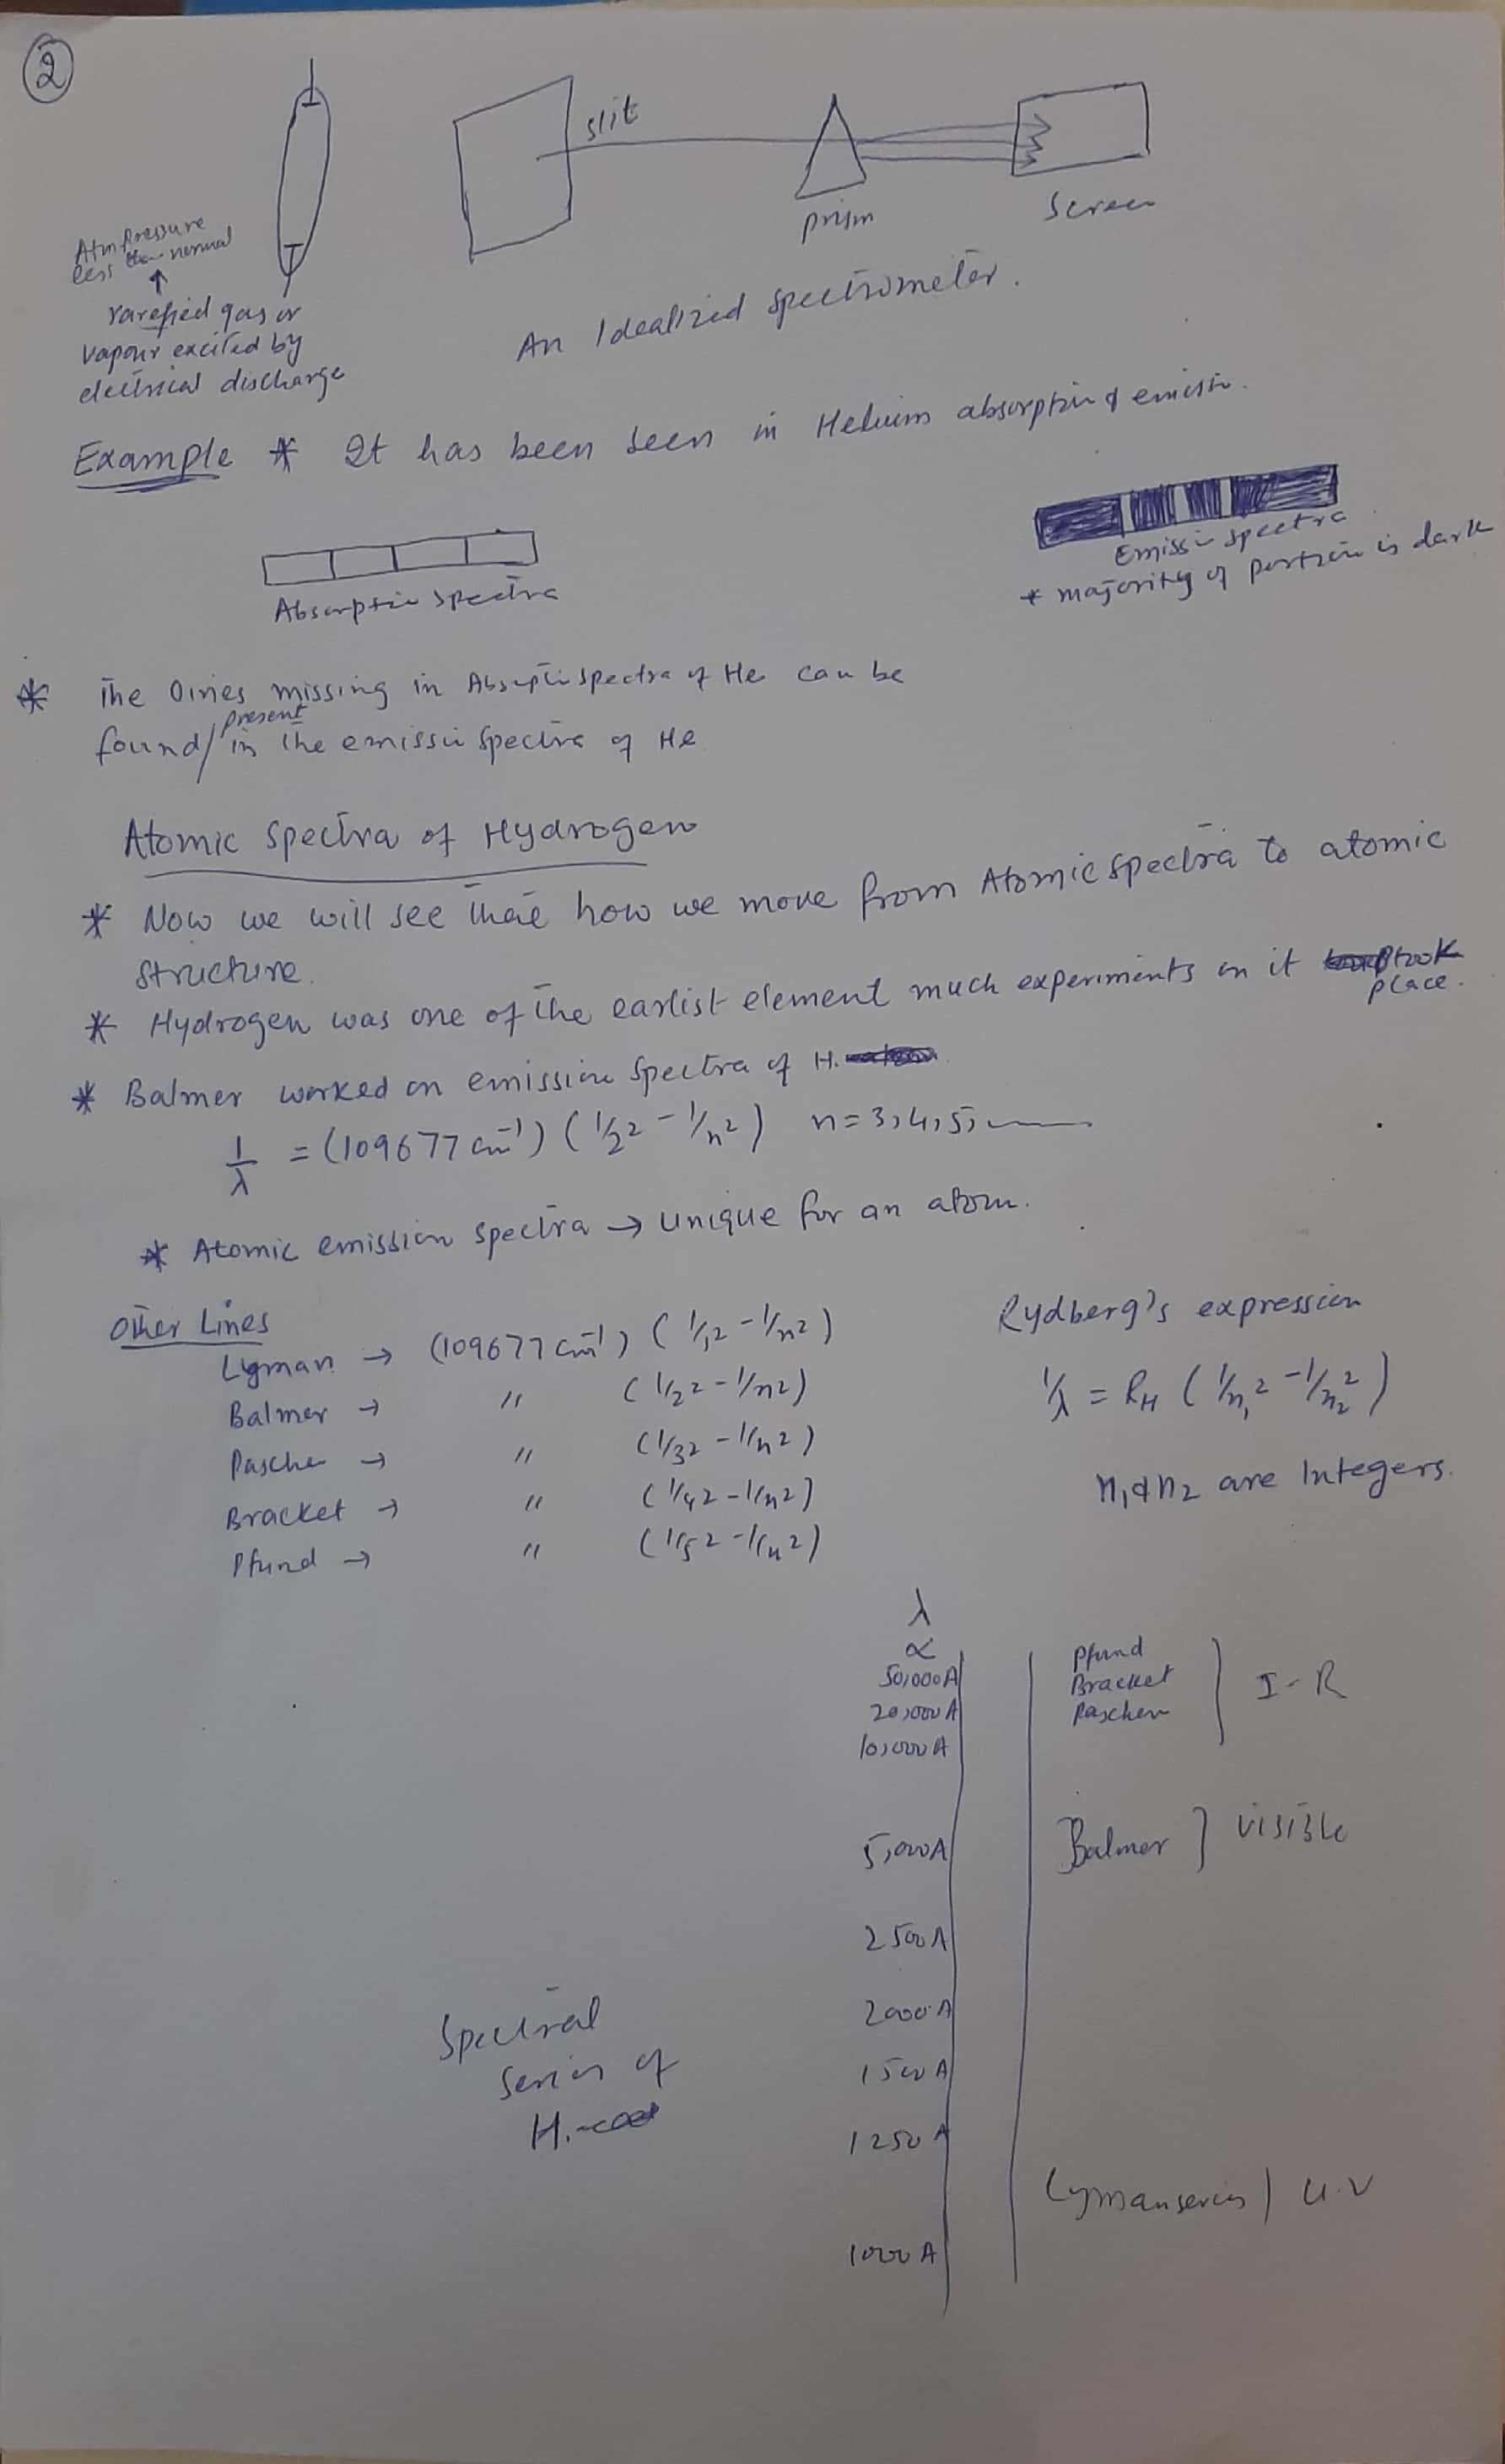 2
slit
prism
Screen
Atm pressure
less than normal
↑
rarefied gas or
vapour excited by
electrical discharge
An Idealized spectrometer.
Example * It has been seen in Helium absorption & emission.
Absorption spectra
Emission spectra
* majority of portion is dark
* The Oines missing in Absorption spectra of He can be
found/ present in the emission spectra of He
Atomic Spectra of Hydrogen
* Now we will see that how we move from Atomic spectra to atomic
structure.
* Hydrogen was one of the earlist element much experiments on it took
place.
* Balmer worked on emission spectra of H.
1/λ = (109677 cm⁻¹) (1/2² - 1/n²) n = 3,4,5,
* Atomic emission spectra → unique for an atom.
Other Lines
Lyman → (109677 cm⁻¹) (1/1² - 1/n²)
Balmer → " (1/2² - 1/n²)
Paschen → " (1/3² - 1/n²)
Bracket → " (1/4² - 1/n²)
Pfund → " (1/5² - 1/n²)
Rydberg's expression
1/λ = RH (1/n₁² - 1/n₂²)
n₁ & n₂ are Integers.
λ
∝
50,000A
20,000A
10,000A
5,000A
2500A
2000A
1500A
1250A
1000A
Pfund
Bracket
Paschen
I-R
Balmer } visible
Lyman series | U.V
Spectral
series of
H.